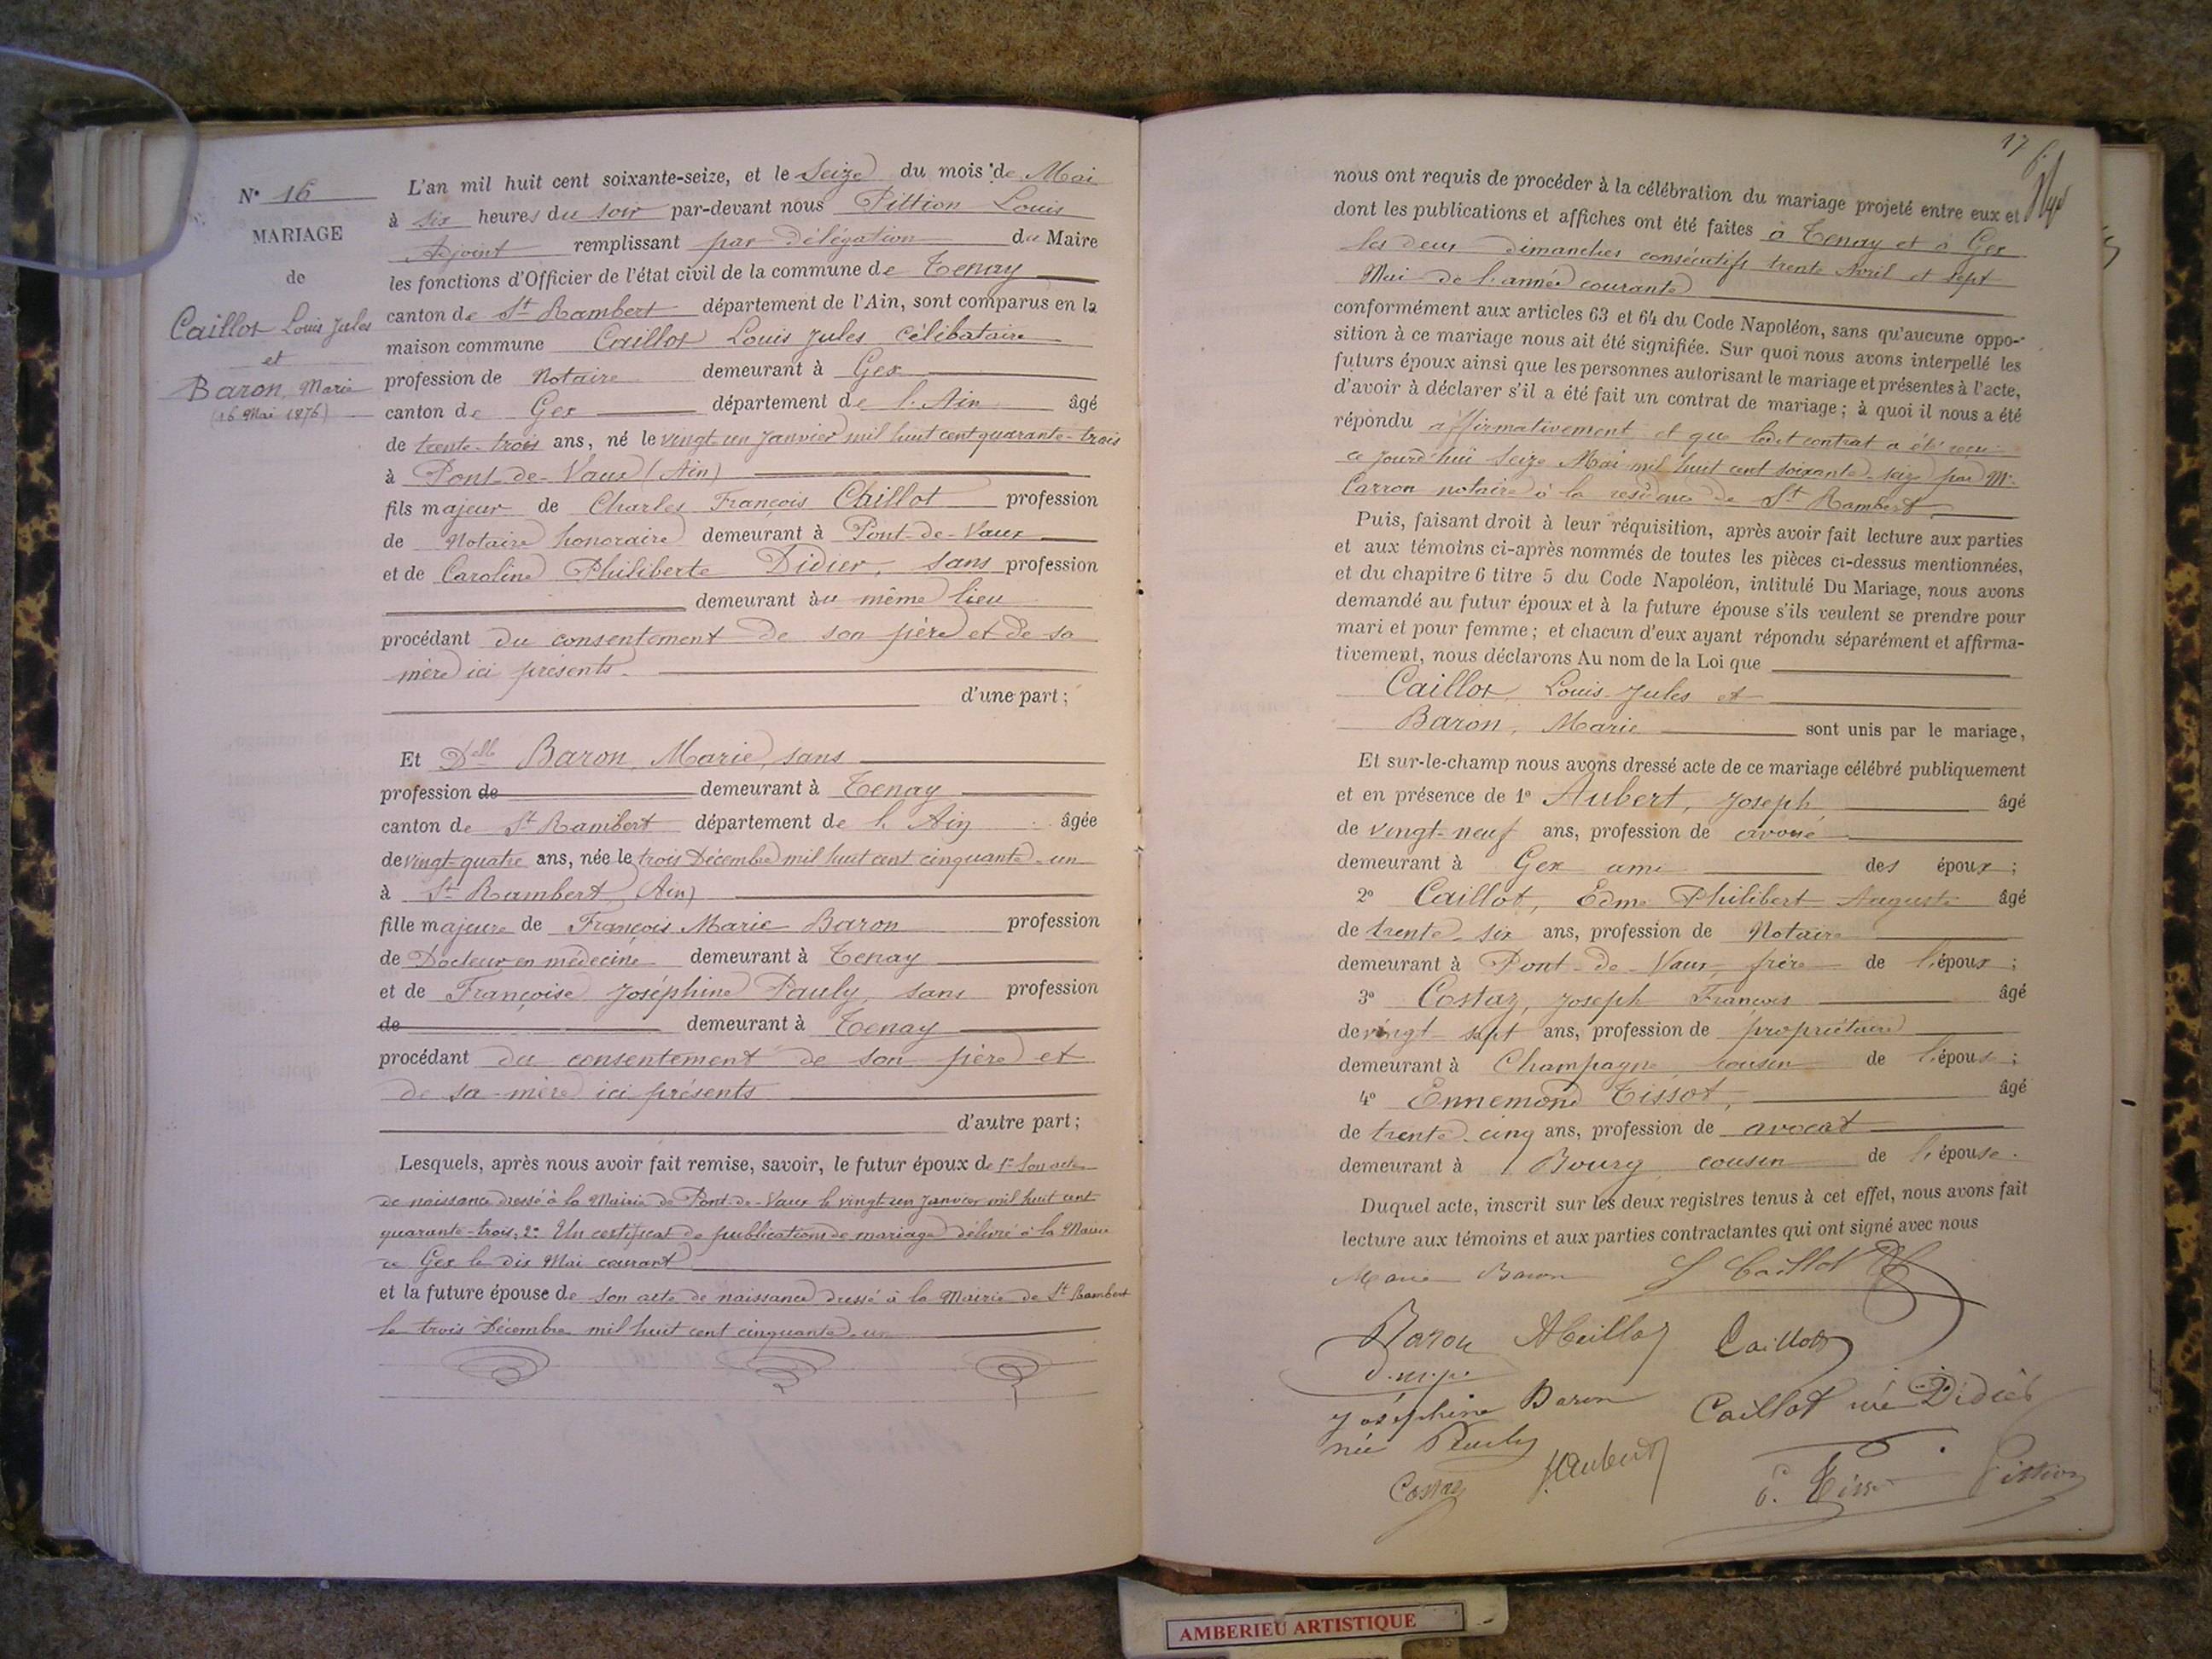 N° 16
MARIAGE
de
Caillot Louis Jules
et
Baron, Marie
(16 Mai 1876)
L'an mil huit cent soixante-seize, et le Seize du mois de Mai
à six heures du soir par-devant nous Pittion Louis
Adjoint remplissant par délégation du Maire
les fonctions d'Officier de l'état civil de la commune de Tenay
canton de St Rambert département de l'Ain, sont comparus en la
maison commune Caillot Louis Jules célibataire
profession de Notaire demeurant à Gex
canton de Gex département de l'Ain âgé
de trente-trois ans, né le vingt-un Janvier mil huit cent quarante-trois
à Pont-de-Vaux (Ain)
fils majeur de Charles François Caillot profession
de Notaire honoraire demeurant à Pont-de-Vaux
et de Caroline Philiberte Didier, sans profession
demeurant au même lieu
procédant du consentement de son père et de sa
mère ici présents.
d'une part ;
Et Delle Baron, Marie, sans
profession de demeurant à Tenay
canton de St Rambert département de l'Ain âgée
de vingt-quatre ans, née le trois Décembre mil huit cent cinquante-un
à St Rambert (Ain)
fille majeure de François Marie Baron profession
de Docteur en médecine demeurant à Tenay
et de Françoise Joséphine Pauly, sans profession
de demeurant à Tenay
procédant du consentement de son père et
de sa mère ici présents
d'autre part ;
Lesquels, après nous avoir fait remise, savoir, le futur époux de 1° Son acte
de naissance dressé à la Mairie de Pont-de-Vaux le vingt-un Janvier mil huit cent
quarante-trois; 2° Un certificat de publications de mariage délivré à la Mairie
de Gex le dix Mai courant
et la future épouse de son acte de naissance dressé à la Mairie de St Rambert
le trois Décembre mil huit cent cinquante-un
17
nous ont requis de procéder à la célébration du mariage projeté entre eux et
dont les publications et affiches ont été faites à Tenay et à Gex
les deux dimanches consécutifs trente Avril et sept
Mai de l'année courante
conformément aux articles 63 et 64 du Code Napoléon, sans qu'aucune oppo-
sition à ce mariage nous ait été signifiée. Sur quoi nous avons interpellé les
futurs époux ainsi que les personnes autorisant le mariage et présentes à l'acte,
d'avoir à déclarer s'il a été fait un contrat de mariage ; à quoi il nous a été
répondu affirmativement et que ledit contrat a été reçu
ce jourd'hui Seize Mai mil huit cent soixante-seize par Me
Carron notaire à la résidence de St Rambert.
Puis, faisant droit à leur réquisition, après avoir fait lecture aux parties
et aux témoins ci-après nommés de toutes les pièces ci-dessus mentionnées,
et du chapitre 6 titre 5 du Code Napoléon, intitulé Du Mariage, nous avons
demandé au futur époux et à la future épouse s'ils veulent se prendre pour
mari et pour femme ; et chacun d'eux ayant répondu séparément et affirma-
tivement, nous déclarons Au nom de la Loi que
Caillot, Louis-Jules et
Baron, Marie sont unis par le mariage,
Et sur-le-champ nous avons dressé acte de ce mariage célébré publiquement
et en présence de 1° Aubert, Joseph, âgé
de vingt-neuf ans, profession de avoué
demeurant à Gex ami des époux ;
2° Caillot, Edme Philibert Auguste âgé
de trente-six ans, profession de Notaire
demeurant à Pont-de-Vaux, frère de l'époux ;
3° Costaz, Joseph François âgé
de vingt sept ans, profession de propriétaire
demeurant à Champagne cousin de l'épouse ;
4° Ennemond Tissot, âgé
de trente-cinq ans, profession de avocat
demeurant à Bourg cousin de l'épouse.
Duquel acte, inscrit sur les deux registres tenus à cet effet, nous avons fait
lecture aux témoins et aux parties contractantes qui ont signé avec nous
Marie Baron L Caillot
Baron Caillot
d.m.p.
Joséphine Baron Caillot née Didier
née Pauly
Costaz J. Aubert E. Tissot Pittion
AMBERIEU ARTISTIQUE